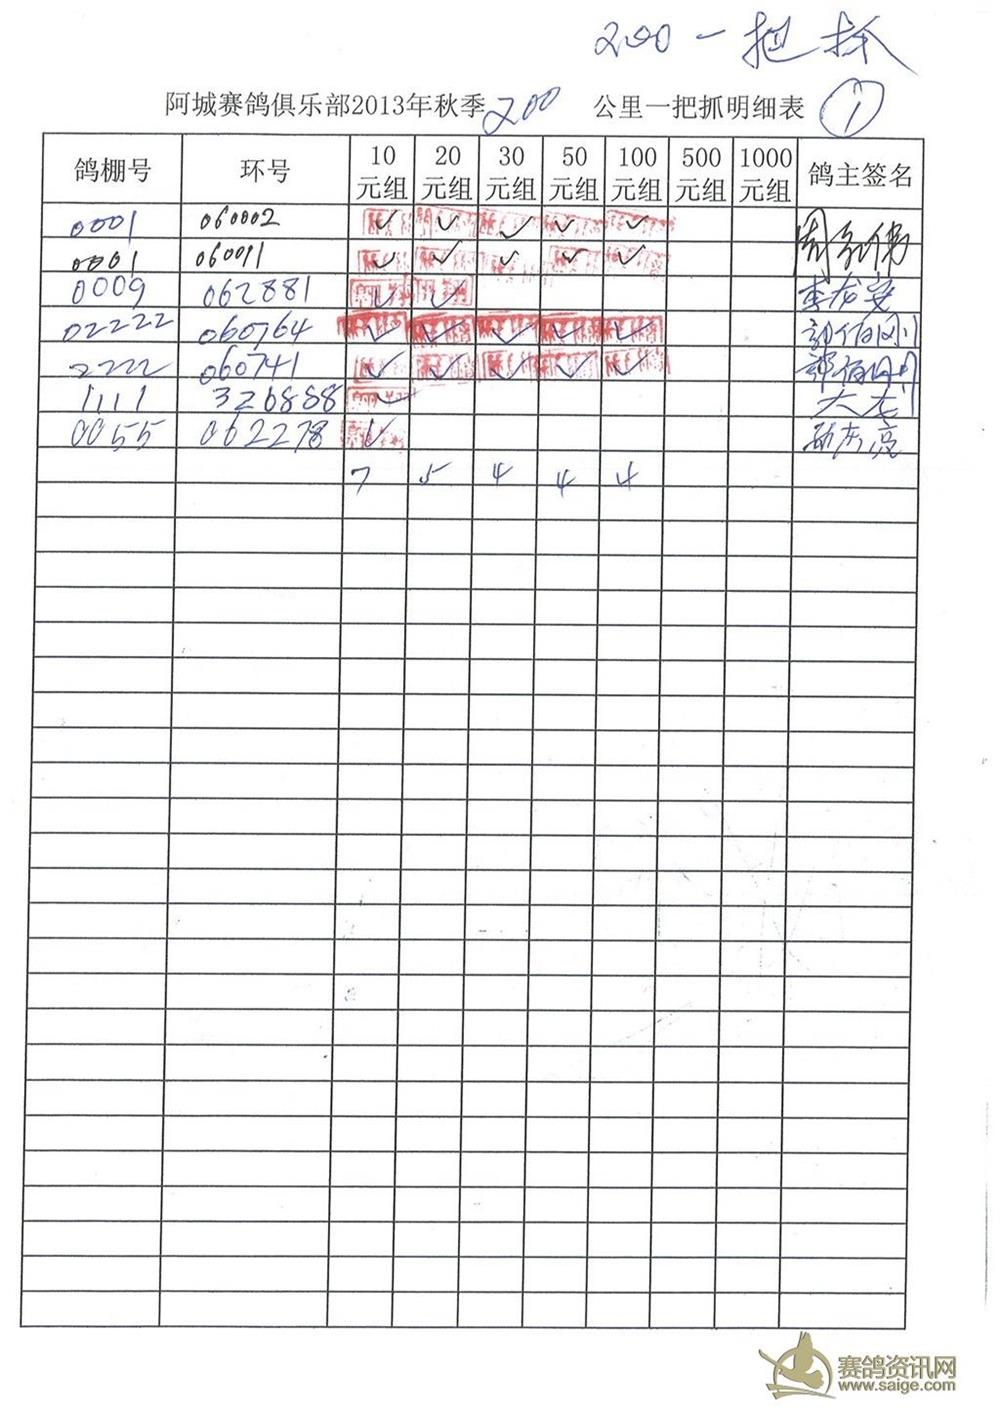 200一把抓
阿城赛鸽俱乐部2013年秋季200公里一把抓明细表 ①
鸽棚号 环号 10元组 20元组 30元组 50元组 100元组 500元组 1000元组 鸽主签名
0001 060002 ✓ ✓ ✓ ✓ ✓
0001 060091 ✓ ✓ ✓ ✓ ✓
0009 062881 ✓ ✓ 李龙安
02222 060764 ✓ ✓ ✓ ✓ ✓ 郭伯刚
2222 060741 ✓ ✓ ✓ ✓ ✓ 郭伯刚
1111 326888 ✓ 大龙
0055 062278 ✓
7 5 4 4 4
赛鸽资讯网
www.saige.com